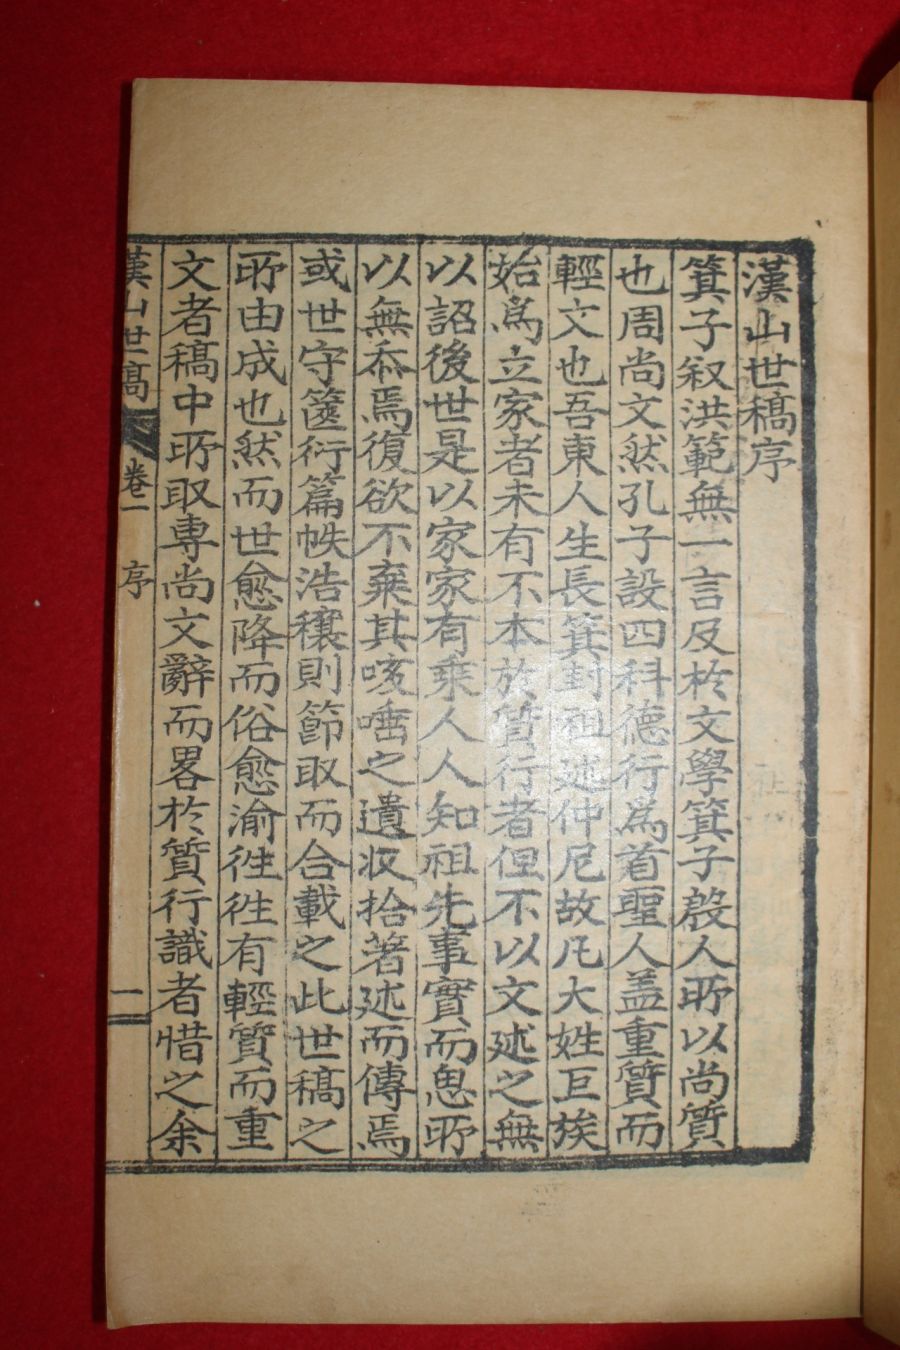 漢山世稿序
箕子叙洪範無一言及於文學箕子殷人所以尚質
也周尚文然孔子設四科德行爲首聖人盖重質而
輕文也吾東人生長箕封祖述仲尼故凡大姓巨族
始爲立家者未有不本於質行者但不以文述之無
以詔後世是以家家有乗人人知祖先事實而思所
以無忝焉復欲不棄其咳唾之遺収拾著述而傳焉
或世守篋衍篇帙浩穰則節取而合載之此世稿之
所由成也然而世愈降而俗愈渝徃徃有輕質而重
文者稿中所取專尚文辭而畧於質行識者惜之余
漢山世稿 卷一 序 一